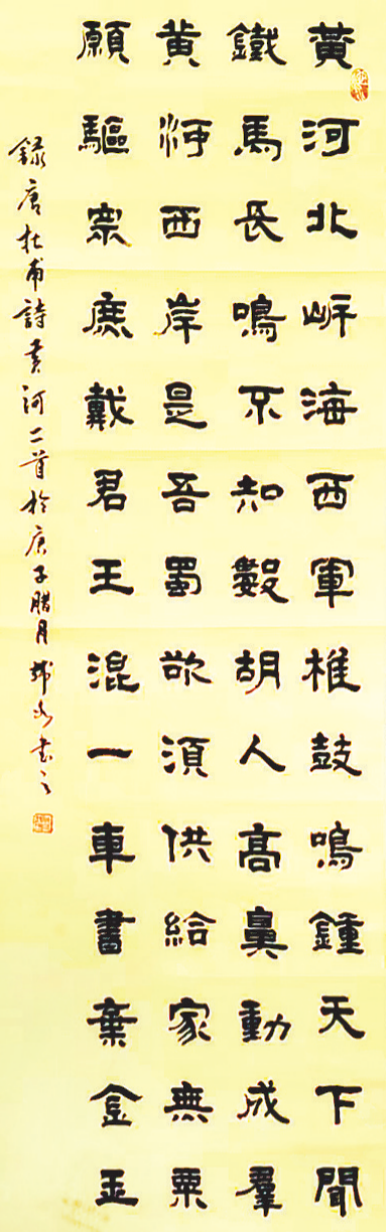 黄河北岸海西軍椎鼓鳴鍾天下聞
鐵馬長鳴不知數胡人高鼻動成羣
黄河西岸是吾蜀欲須供給家無粟
願驅衆庶戴君王混一車書棄金玉
録唐杜甫詩黄河二首於庚子腊月書之